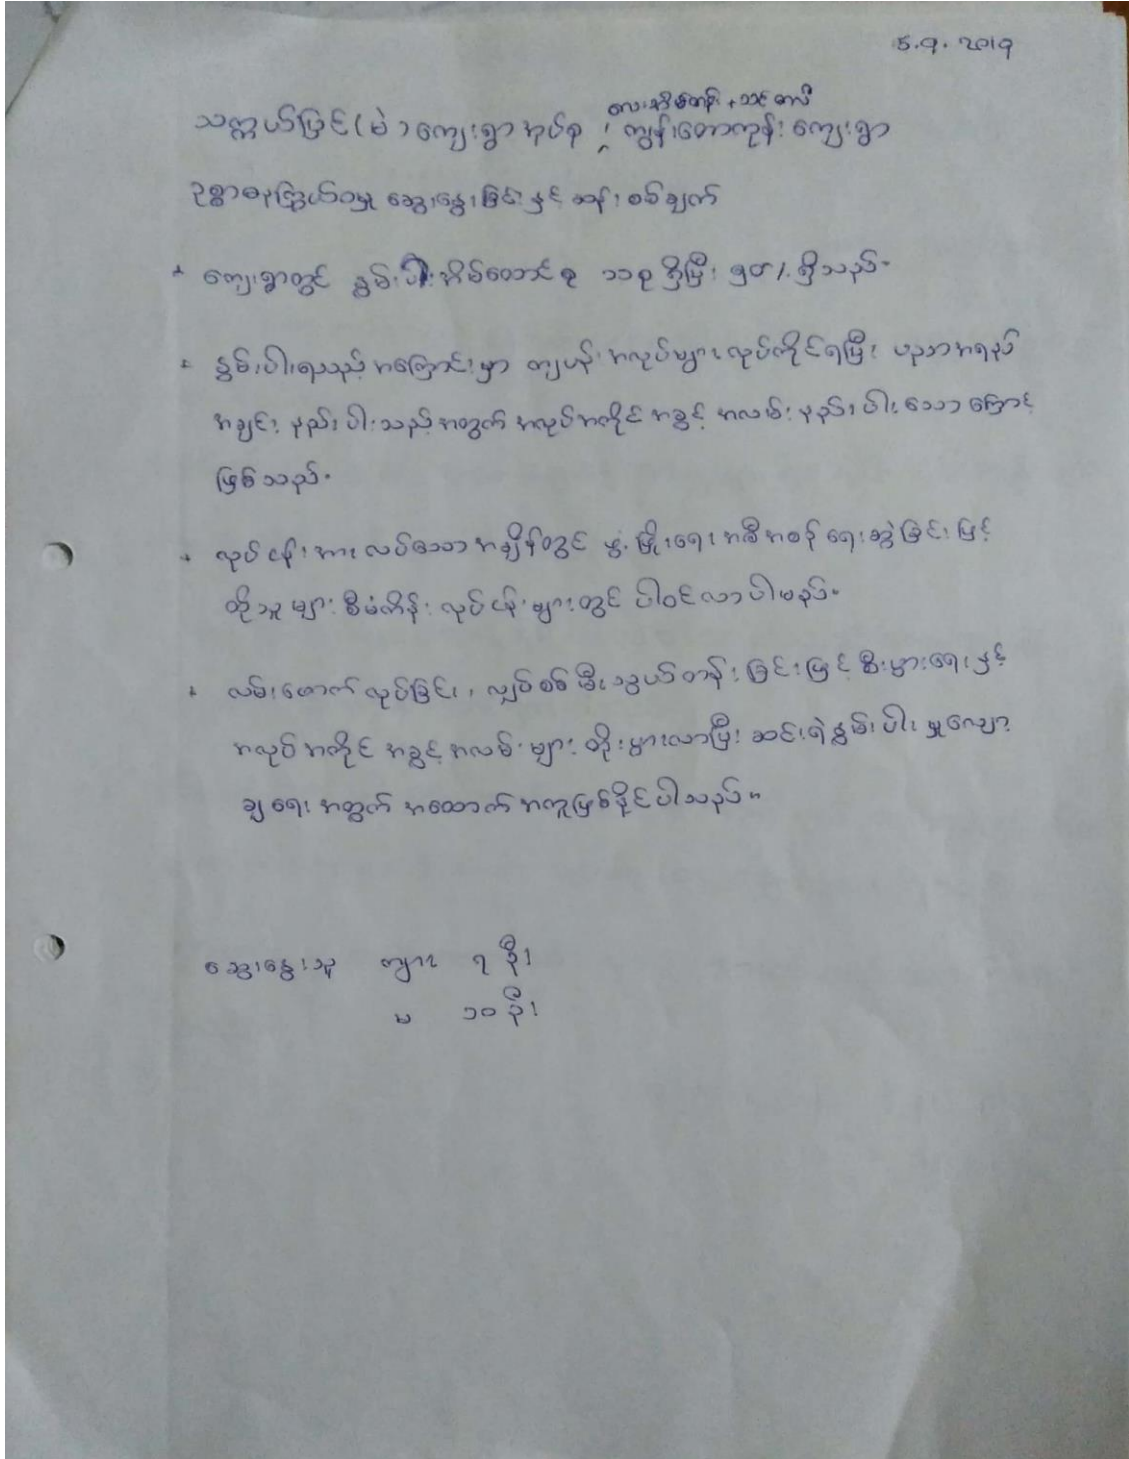 ၆.၇.၂၀၁၇
လေးအိမ်တန်း + သင်္ဘောလီ
သက္ကယ်ပြင် (မဲ) ကျေးရွာအုပ်စု ၊ ကျွန်းတောကုန်း ကျေးရွာ
ဥစ္စာဓနကြွယ်ဝမှု ဆွေးနွေးခြင်းနှင့် ဆန်းစစ်ချက်
* ကျေးရွာတွင် နွမ်းပါးအိမ်ထောင်စု ၁၁စု ရှိပြီး ၅၀% ရှိသည်။
* နွမ်းပါးရသည့် အကြောင်းမှာ ကျပန်း အလုပ်များ လုပ်ကိုင်ရပြီး ပညာအရည်
အချင်း နည်းပါးသည့်အတွက် အလုပ်အကိုင် အခွင့် အလမ်း နည်းပါးသောကြောင့်
ဖြစ်သည်။
* လုပ်ငန်း အားလပ်သော အချိန်တွင် ဖွံ့ဖြိုးရေး အစီအစဉ် ရေးဆွဲခြင်းဖြင့်
ထိုသူများ စီမံကိန်း လုပ်ငန်းများတွင် ပါဝင်လာပါမည်။
* လမ်းဖောက်လုပ်ခြင်း ၊ လျှပ်စစ်မီးသွယ်တန်းခြင်းဖြင့် စီးပွားရေးနှင့်
အလုပ်အကိုင် အခွင့်အလမ်းများ တိုးပွားလာပြီး ဆင်းရဲနွမ်းပါးမှုလျော့
ချရေး အတွက် အထောက် အကူဖြစ်နိုင်ပါသည်။
ဆွေးနွေးသူ ကျား ၇ ဦး
မ ၁၀ ဦး